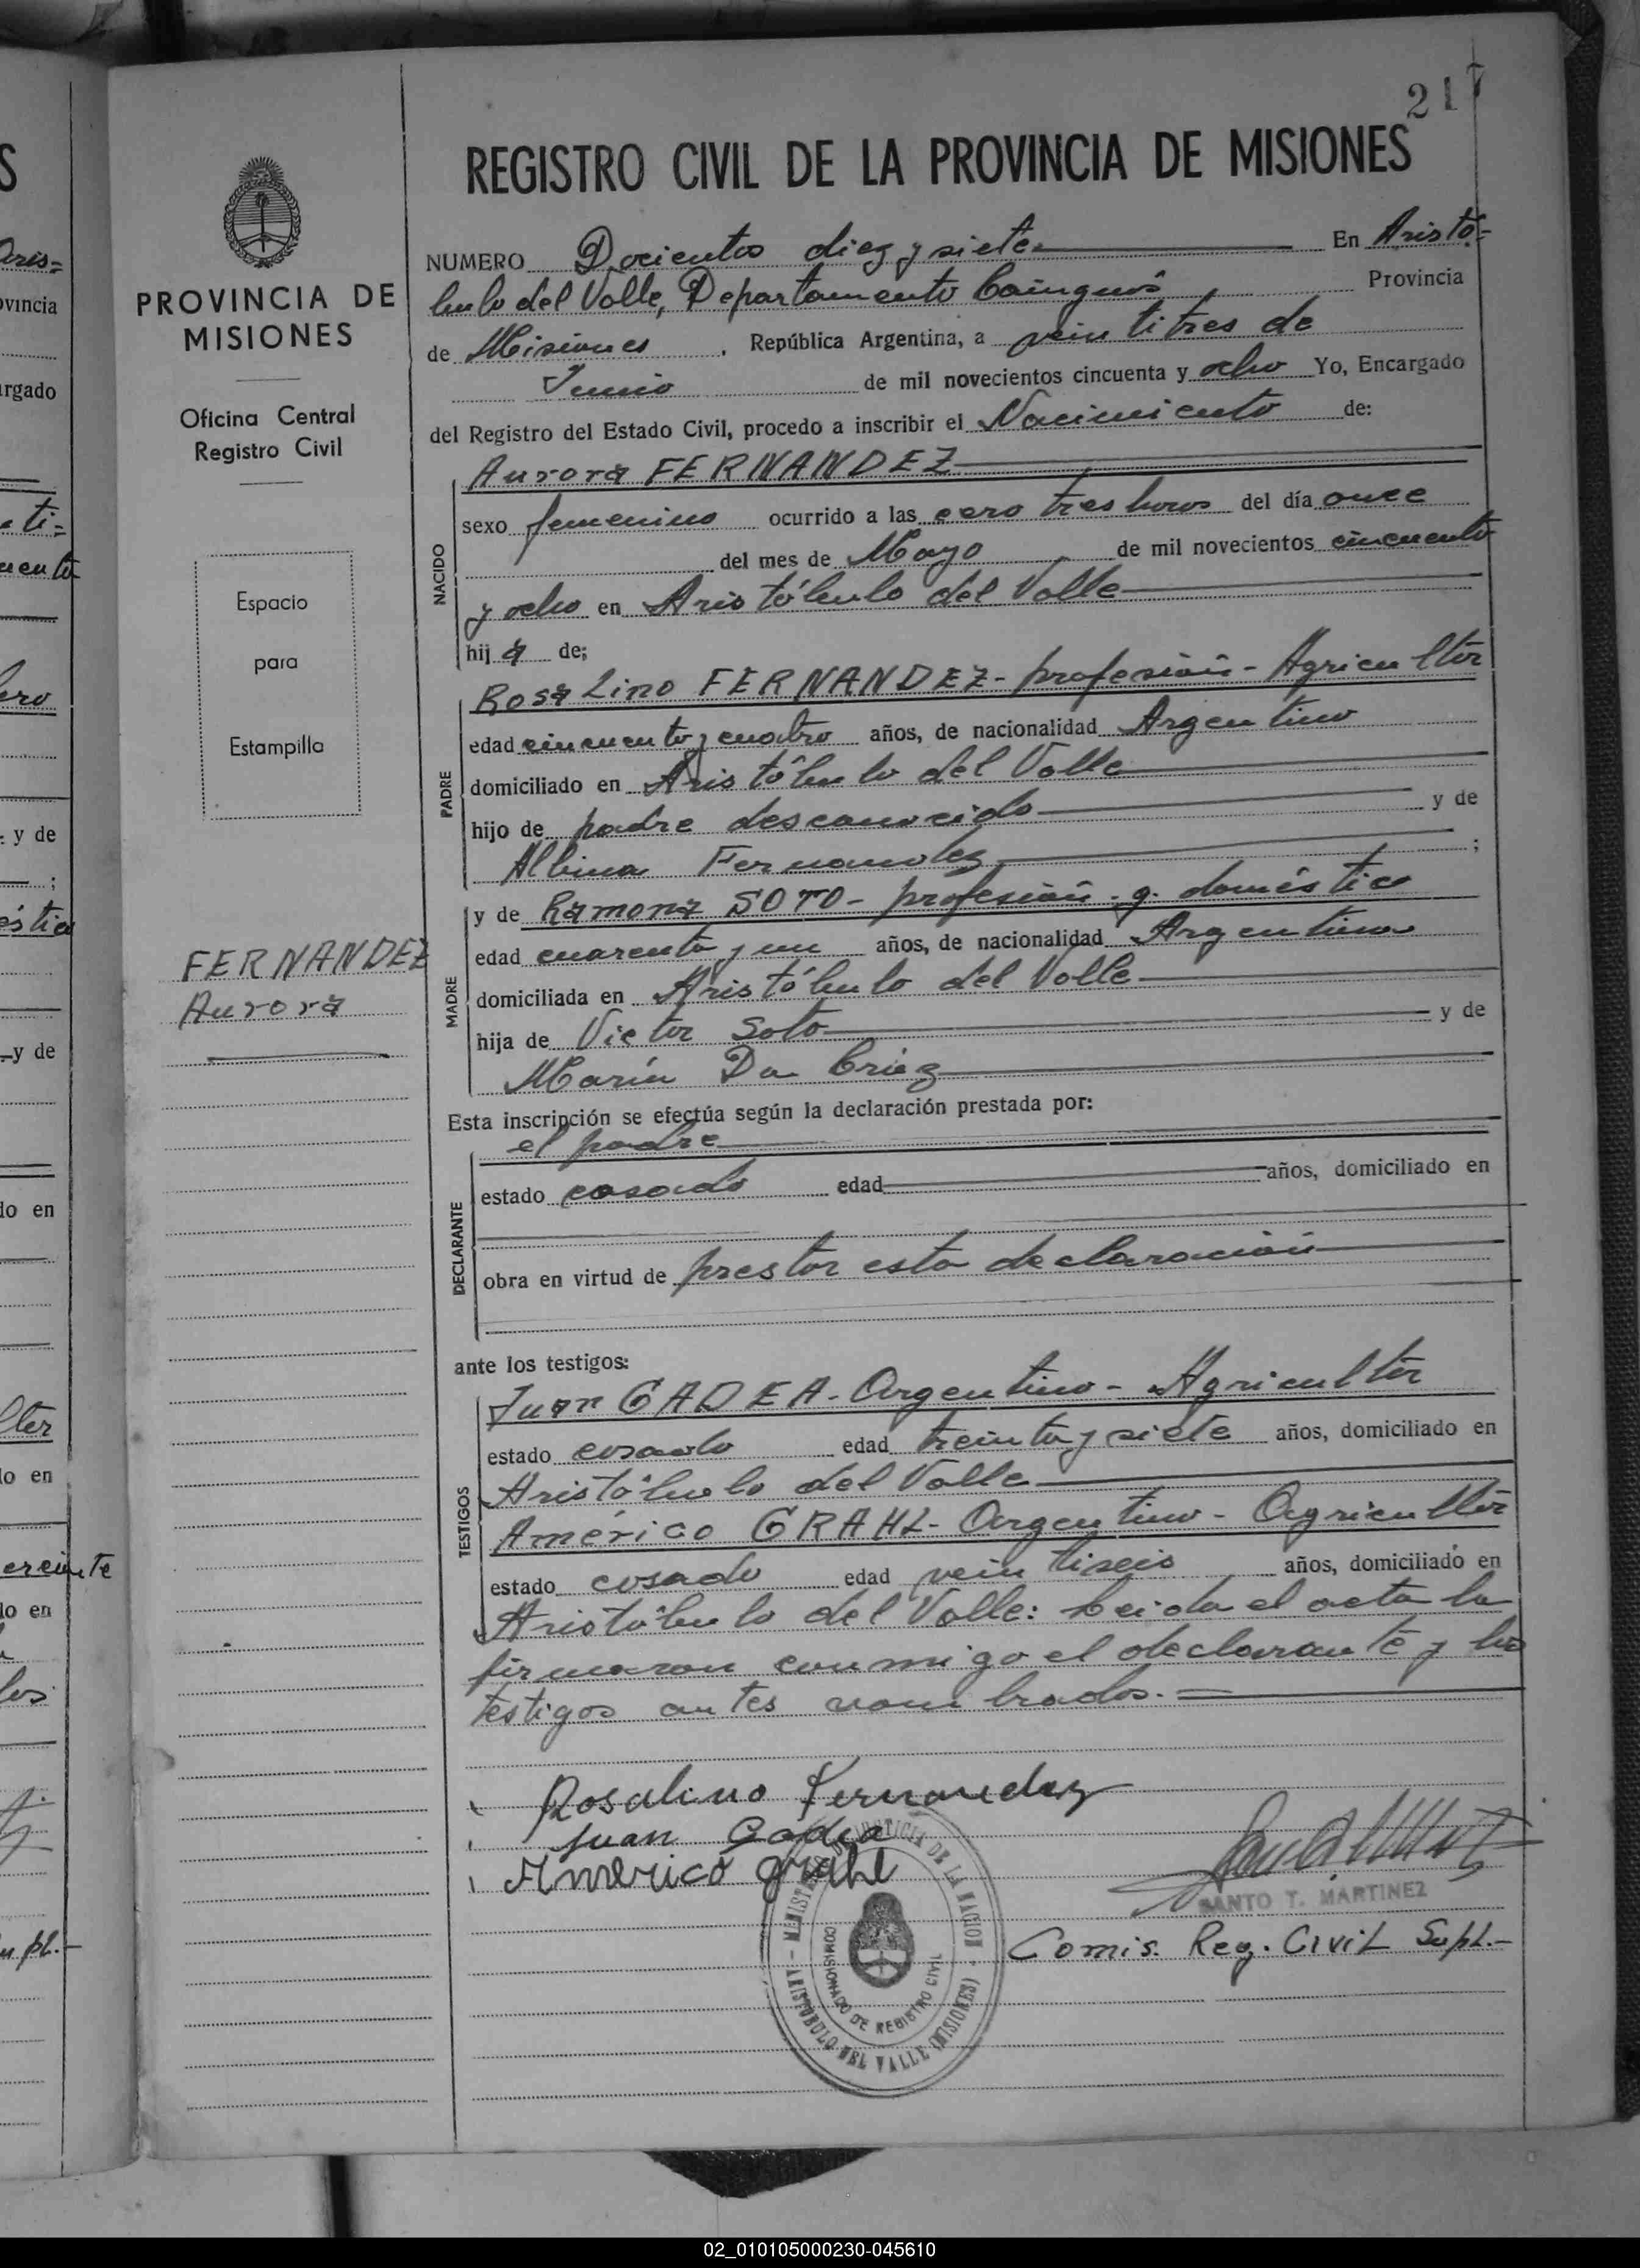 217
REGISTRO CIVIL DE LA PROVINCIA DE MISIONES
NUMERO Docientos diez y siete En Aristó-
bulo del Valle, Departamento Cainguás Provincia
de Misiones, República Argentina, a vein titres de
Junio de mil novecientos cincuenta y ocho Yo, Encargado
del Registro del Estado Civil, procedo a inscribir el Nacimiento de:
NACIDO
Aurora FERNANDEZ
sexo femenino ocurrido a las cero tres horas del día once
del mes de Mayo de mil novecientos cincuenta
y ocho en Aristóbulo del Valle
hija de;
PADRE
Rosalino FERNANDEZ- profesión- Agricultor
edad cincuenta y cuatro años, de nacionalidad Argentino
domiciliado en Aristóbulo del Valle
hijo de padre desconocido y de
Albina Fernandez ;
MADRE
y de Ramona SOTO- profesión- q. doméstico
edad cuarenta y un años, de nacionalidad Argentina
domiciliada en Aristóbulo del Valle
hija de Victor Soto y de
María Da Criz
Esta inscripción se efectúa según la declaración prestada por:
DECLARANTE
el padre
estado casado edad años, domiciliado en
obra en virtud de prestar esta declaración
ante los testigos:
TESTIGOS
Juan GADEA- Argentino- Agricultor
estado casado edad treinta y siete años, domiciliado en
Aristóbulo del Valle
Américo GRAHL- Argentino- Agricultor
estado casado edad veintiseis años, domiciliado en
Aristóbulo del Valle: Leida el acta la
firmaron conmigo el declarante y los
testigos antes nombrados.=
Rosalino Fernandez
Juan Gadea
Americo Grahl
SANTO T. MARTINEZ
Comis. Reg. Civil Supl.-
MINISTERIO DE JUSTICIA DE LA NACION
COMISIONADO DE REGISTRO CIVIL
ARISTOBULO DEL VALLE (MISIONES)
PROVINCIA DE
MISIONES
Oficina Central
Registro Civil
Espacio
para
Estampilla
FERNANDEZ
Aurora
02_010105000230-045610